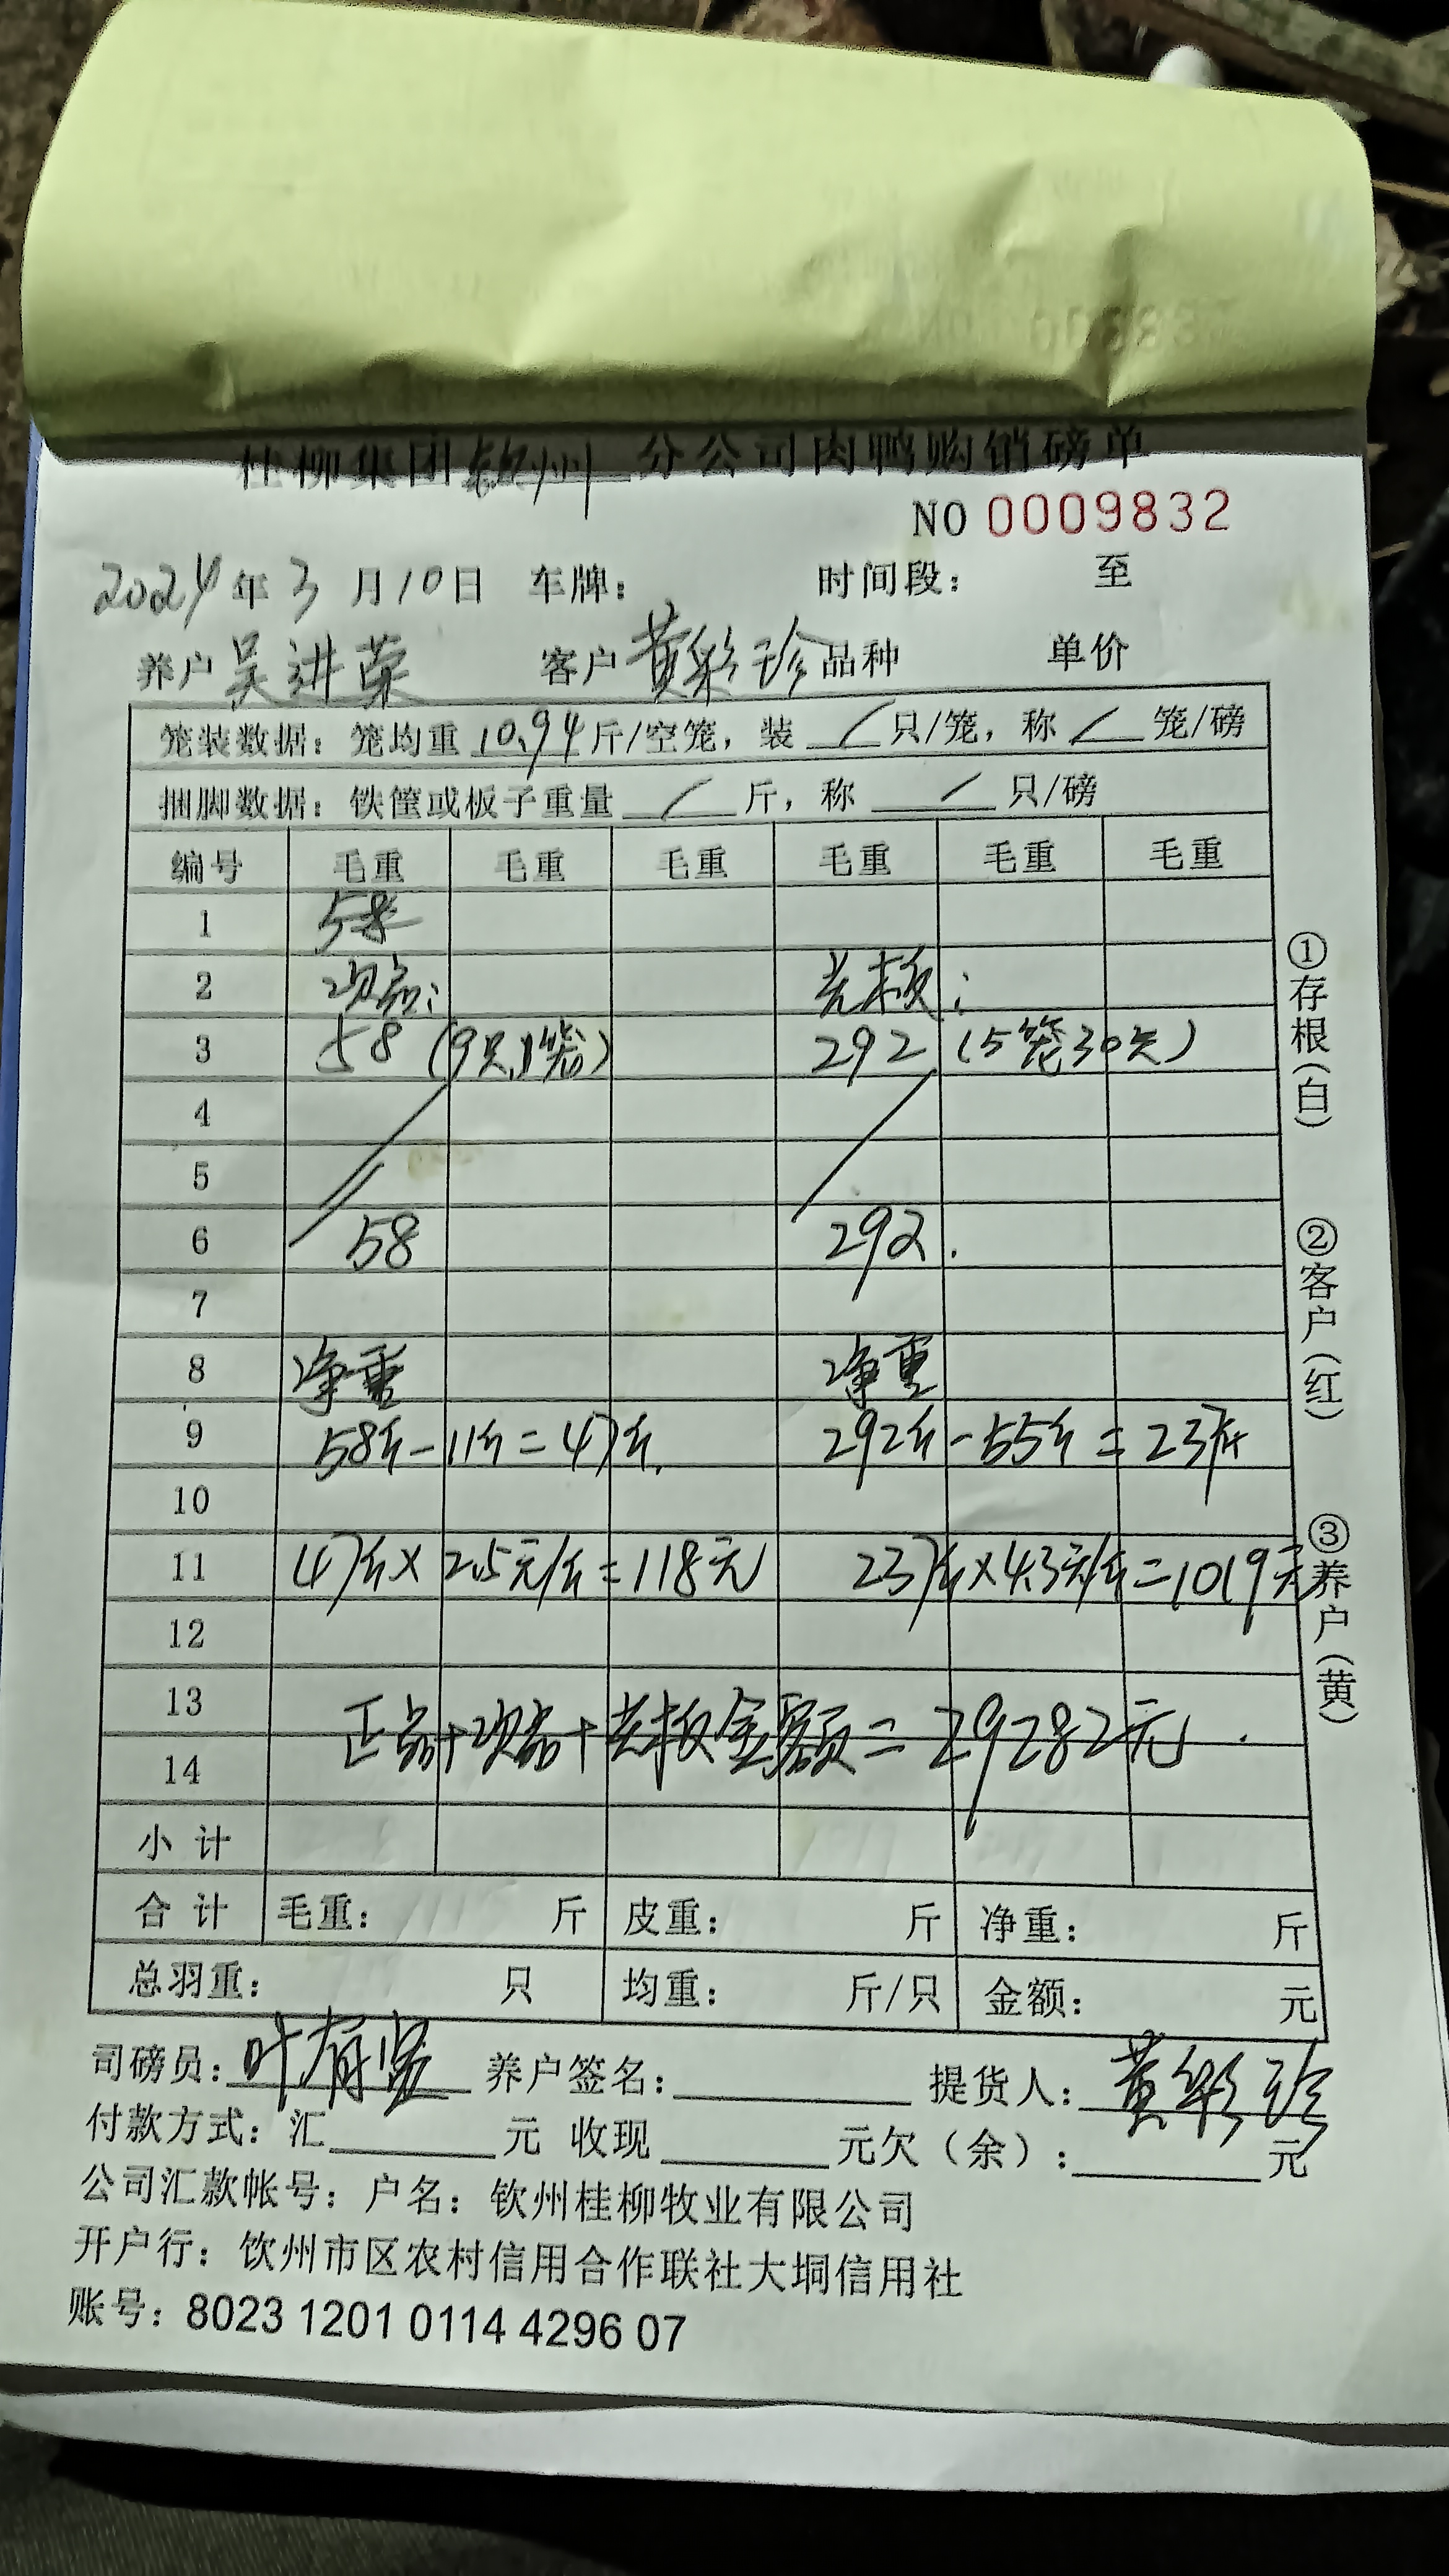 桂柳集团钦州分公司肉鸭购销磅单
NO 0009832
2024年3月10日 车牌： 时间段： 至
养户 吴进荣 客户 黄彩珍 品种 单价
笼装数据：笼均重 10.94 斤/空笼，装 / 只/笼，称 / 笼/磅
捆脚数据：铁筐或板子重量 / 斤，称 / 只/磅
编号 毛重 毛重 毛重 毛重 毛重 毛重
1 58
2 次品： 光板：
3 58 (9只,1笼) 292 (5笼30只)
4
5
6 58 292.
7
8 净重 净重
9 58斤-11斤=47斤. 292斤-55斤=237斤
10
11 47斤×2.5元/斤=118元 237斤×4.3元/斤=1019元
12
13 正品+次品+光板金额=29282元.
14
小计
合计 毛重： 斤 皮重： 斤 净重： 斤
总羽重： 只 均重： 斤/只 金额： 元
司磅员：叶有 养户签名： 提货人：黄彩珍
付款方式：汇 元 收现 元欠（余）： 元
公司汇款帐号：户名：钦州桂柳牧业有限公司
开户行：钦州市区农村信用合作联社大垌信用社
账号：8023 1201 0114 4296 07
①存根（白）
②客户（红）
③养户（黄）